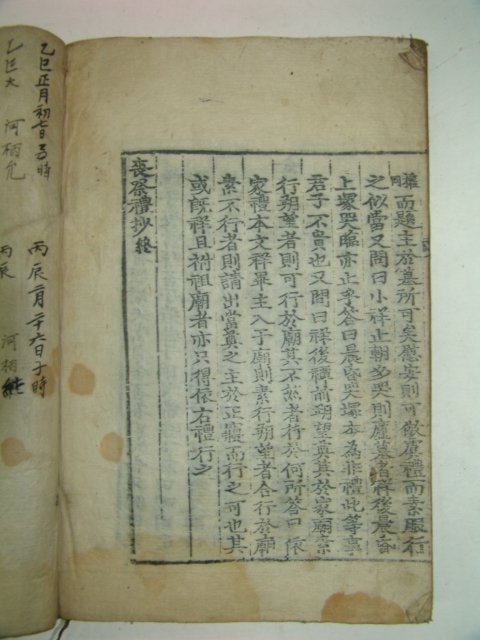 擁而題主於墓所可矣虞安則可倣虞禮而素服行
之似當又問曰小祥止朝夕哭則廬墓者祥後晨昏
上塚哭臨亦止乎答曰晨昏哭塚本為非禮此等事
君子不貴也又問曰祥後禫前朔望奠其於家廟素
行朔望者則可行於廟其不然者行於何所答曰依
家禮本文祥畢主入于廟則素行朔望者合行於廟
素不行者則請出當奠之主於正寢而行之可也其
或旣祥且祔祖廟者亦只得依右禮行之
喪祭禮抄終
丙辰二月二十六日子時
乙巳正月初七日 時
丙辰 河相
乙巳 河